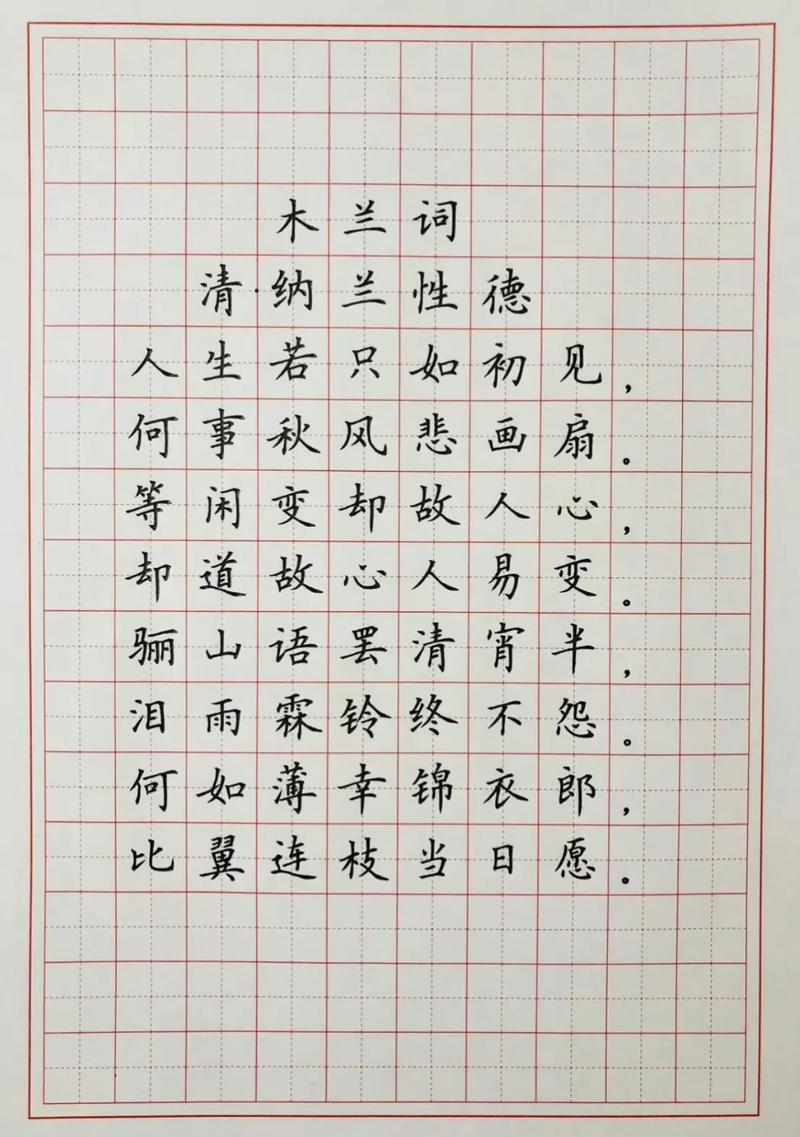 木兰词
清·纳兰性德
人生若只如初见，
何事秋风悲画扇。
等闲变却故人心，
却道故心人易变。
骊山语罢清宵半，
泪雨霖铃终不怨。
何如薄幸锦衣郎，
比翼连枝当日愿。